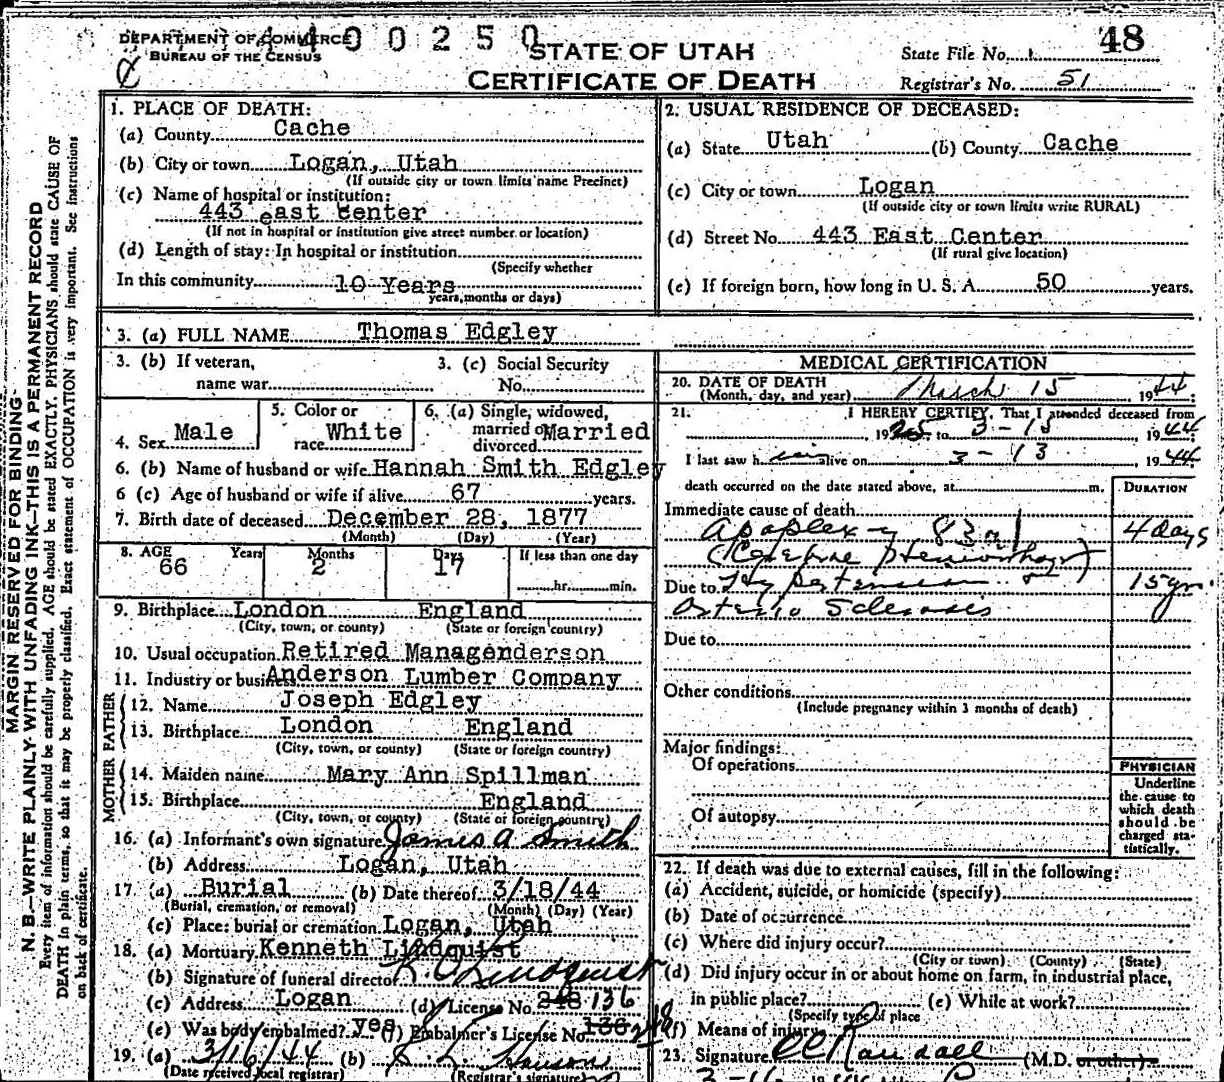 DEPARTMENT OF COMMERCE
BUREAU OF THE CENSUS
4 4 0 0 2 5 0
STATE OF UTAH
CERTIFICATE OF DEATH
State File No. 48
Registrar's No. 51
MARGIN RESERVED FOR BINDING
N. B.—WRITE PLAINLY WITH UNFADING INK—THIS IS A PERMANENT RECORD
Every item of information should be carefully supplied. AGE should be stated EXACTLY. PHYSICIANS should state CAUSE OF
DEATH in plain terms, so that it may be properly classified. Exact statement of OCCUPATION is very important. See instructions
on back of certificate.
1. PLACE OF DEATH:
(a) County Cache
(b) City or town Logan, Utah
(If outside city or town limits name Precinct)
(c) Name of hospital or institution:
443 east Center
(If not in hospital or institution give street number or location)
(d) Length of stay: In hospital or institution
(Specify whether
In this community 10 Years
years, months or days)
2. USUAL RESIDENCE OF DECEASED:
(a) State Utah (b) County Cache
(c) City or town Logan
(If outside city or town limits write RURAL)
(d) Street No. 443 East Center
(If rural give location)
(e) If foreign born, how long in U. S. A. 50 years.
3. (a) FULL NAME Thomas Edgley
3. (b) If veteran,
name war
3. (c) Social Security
No.
4. Sex Male
5. Color or
race White
6. (a) Single, widowed,
married or Married
divorced
6. (b) Name of husband or wife Hannah Smith Edgley
6 (c) Age of husband or wife if alive 67 years.
7. Birth date of deceased December 28, 1877
(Month) (Day) (Year)
8. AGE Years Months Days If less than one day
66 2 17 hr. min.
9. Birthplace London England
(City, town, or county) (State or foreign country)
10. Usual occupation Retired Managenderson
11. Industry or business Anderson Lumber Company
FATHER
12. Name Joseph Edgley
13. Birthplace London England
(City, town, or county) (State or foreign country)
MOTHER
14. Maiden name Mary Ann Spillman
15. Birthplace England
(City, town, or county) (State or foreign country)
16. (a) Informant's own signature James A Smith
(b) Address Logan, Utah
17 (a) Burial (b) Date thereof 3/18/44
(Burial, cremation, or removal) (Month) (Day) (Year)
(c) Place: burial or cremation Logan, Utah
18. (a) Mortuary Kenneth Lindquist
(b) Signature of funeral director K. C. Lindquist
(c) Address Logan (d) License No. 248 136
(e) Was body embalmed? yes (f) Embalmer's License No. 136 248
19. (a) 3/16/44 (b)
(Date received local registrar) (Registrar's signature)
MEDICAL CERTIFICATION
20. DATE OF DEATH
(Month, day, and year) March 15 1944
21. I HEREBY CERTIFY, That I attended deceased from
, 19 to 3-15, 1944;
I last saw him alive on 3-13, 1944
death occurred on the date stated above, at m.
DURATION
Immediate cause of death
Apoplexy 83a1 4 days
(Cerebral Hemorrhage)
Due to Hypertension & 15 yrs
Arterio Sclerosis
Due to
Other conditions
(Include pregnancy within 3 months of death)
Major findings:
Of operations
Of autopsy
PHYSICIAN
Underline
the cause to
which death
should be
charged sta-
tistically.
22. If death was due to external causes, fill in the following:
(a) Accident, suicide, or homicide (specify)
(b) Date of occurrence
(c) Where did injury occur?
(City or town) (County) (State)
(d) Did injury occur in or about home on farm, in industrial place,
in public place? (e) While at work?
(Specify type of place
(f) Means of injury
23. Signature Randall (M.D. or other)